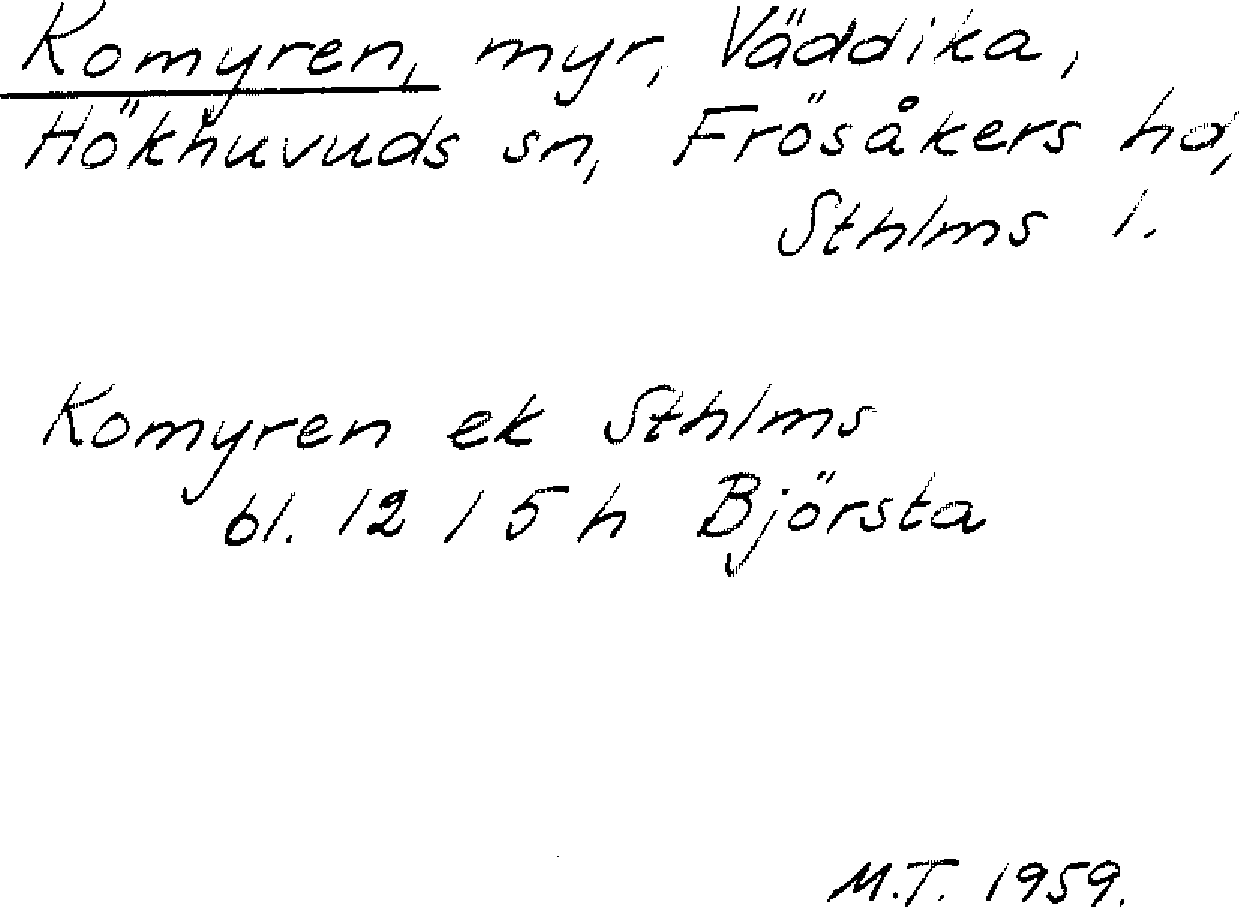 Komyren, myr, Väddika,
Hökhuvuds sn, Frösåkers hd,
Sthlms l.
Komyren ek Sthlms
bl. 12 I 5 h Björsta
M.T. 1959.